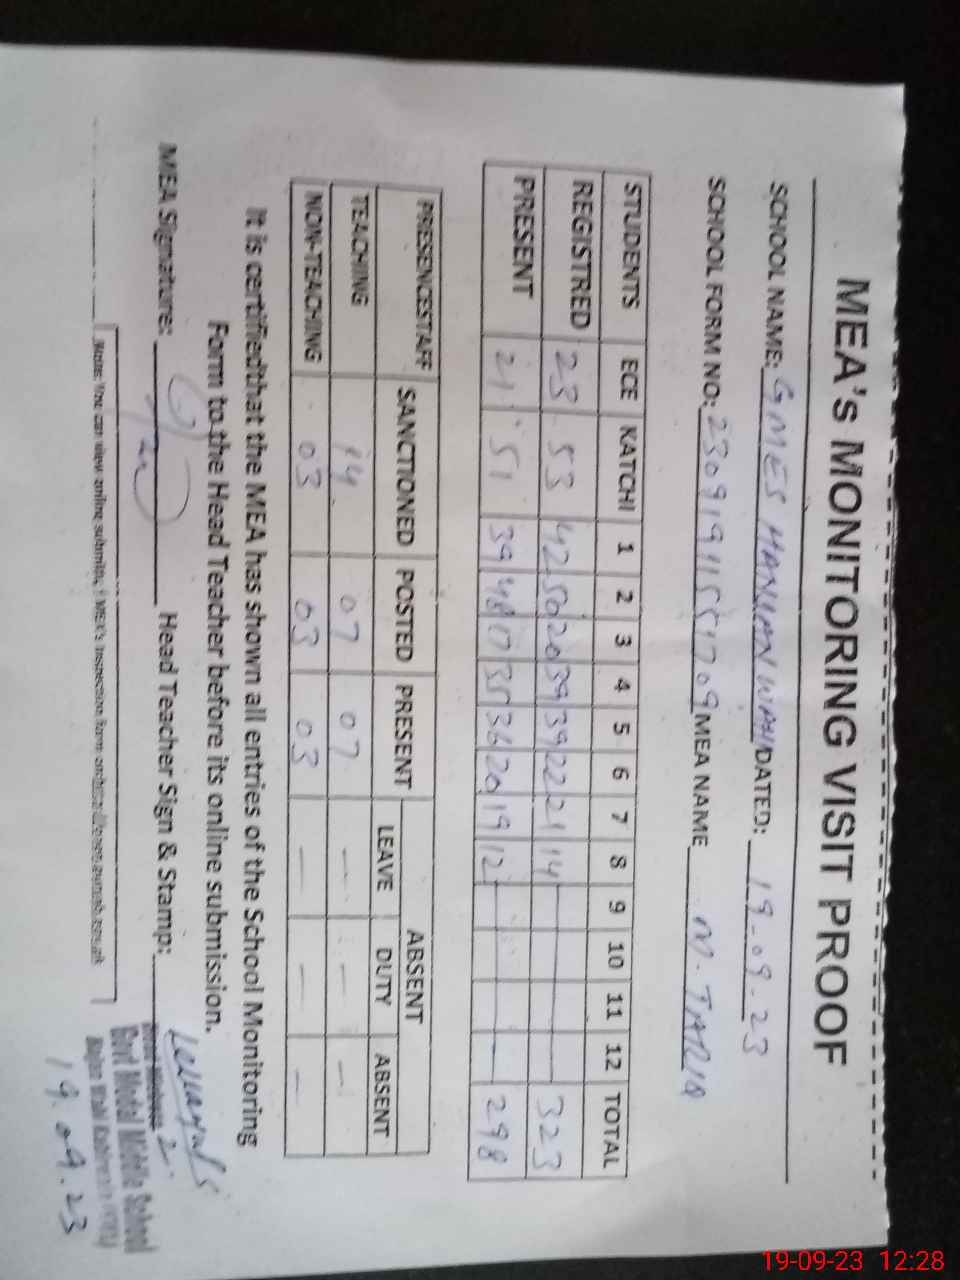 MEA's MONITORING VISIT PROOF
SCHOOL NAME: GMES DATED: 19-09-23
SCHOOL FORM NO: 23091911551709 MEA NAME M. TARIQ
STUDENTS ECE KATCHI 1 2 3 4 5 6 7 8 9 10 11 12 TOTAL
REGISTRED 23 53 42 50 20 39 39 22 21 14 — — — — 323
PRESENT 21 51 39 48 17 35 36 20 19 12 — — — — 298
PRESENCESTAFF SANCTIONED POSTED PRESENT ABSENT
LEAVE DUTY ABSENT
TEACHING 14 07 07 — — —
NON-TEACHING 03 03 03 — — —
It is certifiedthat the MEA has shown all entries of the School Monitoring
Form to the Head Teacher before its online submission.
MEA Signature: Head Teacher Sign & Stamp:
Govt Model Middle School
19.09.23
Note: You can view online submitted MEA's inspection form
19-09-23 12:28